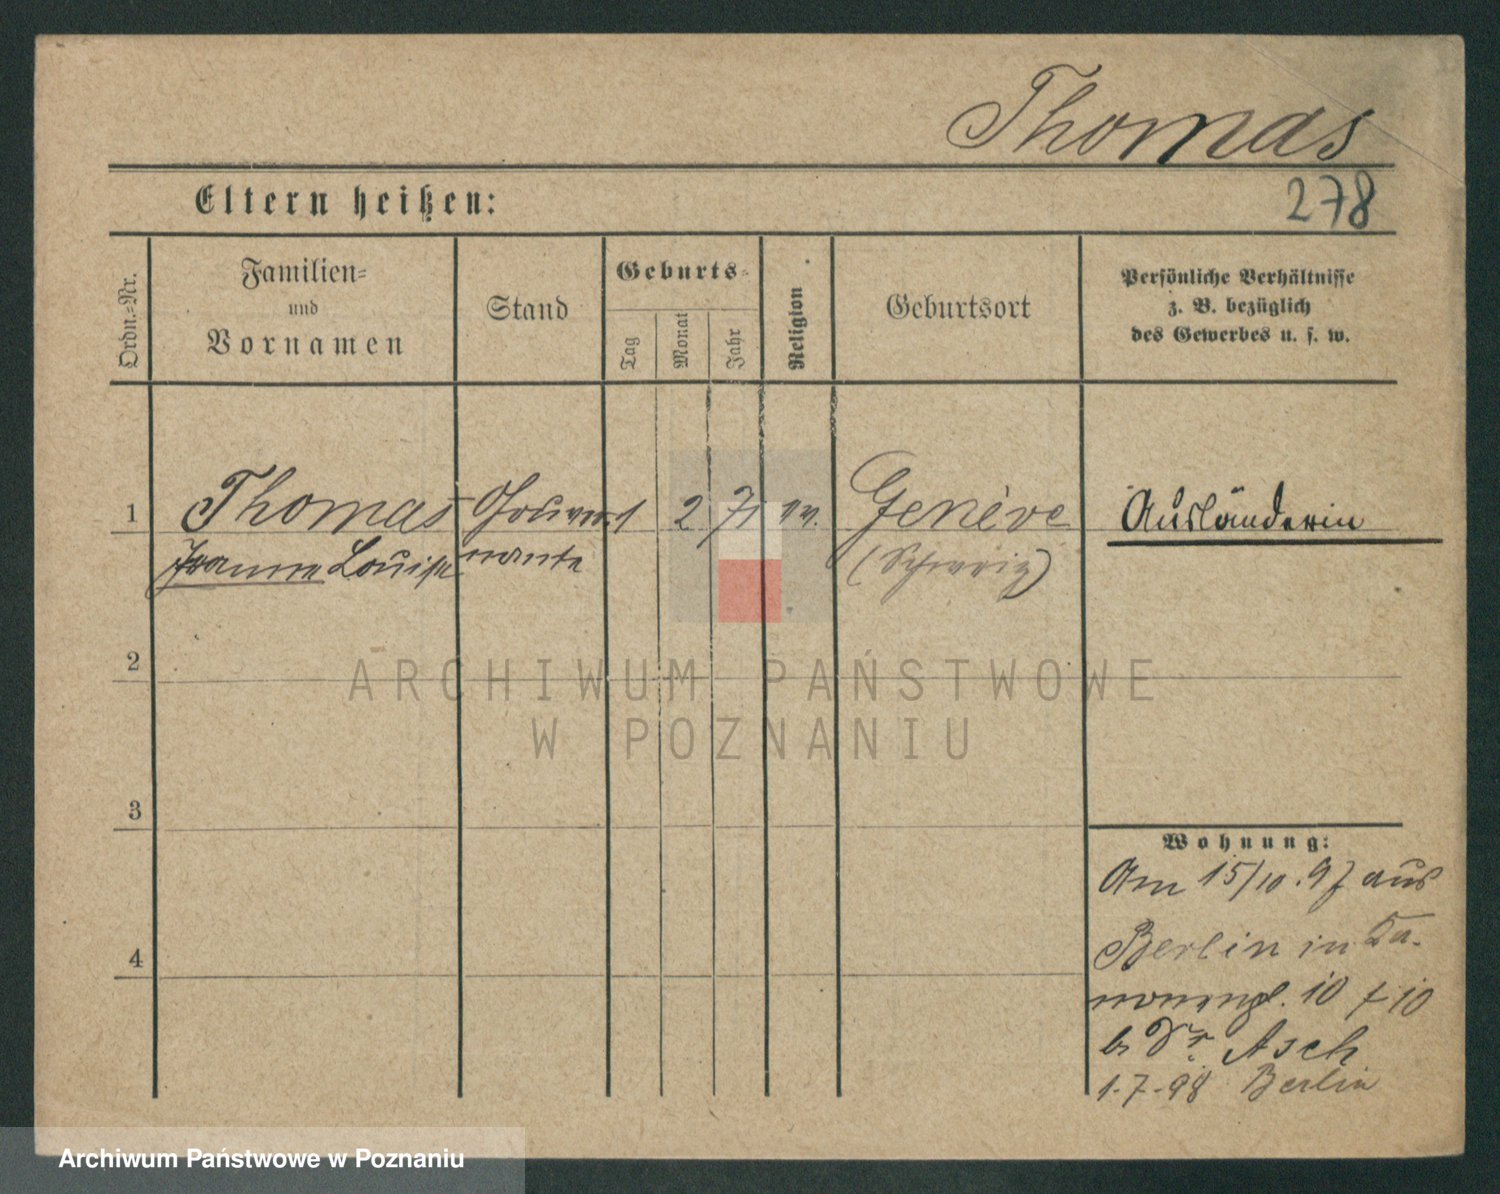 Thomas
278
Eltern heißen:
Ordn.-Nr.
Familien-
und
Vornamen
Stand
Geburts-
Tag
Monat
Jahr
Religion
Geburtsort
Persönliche Verhältnisse
z. B. bezüglich
des Gewerbes u. s. w.
1 Thomas Gouver- 1 2 71 ev. Genève Ausländerin
Louise nante (Schweiz)
2
3
4
Wohnung:
Am 15/10.97 aus
Berlin in Ka-
nonenpl. 10 10
b. Dr. Asch
1.7.98 Berlin
ARCHIWUM PAŃSTWOWE
W POZNANIU
Archiwum Państwowe w Poznaniu